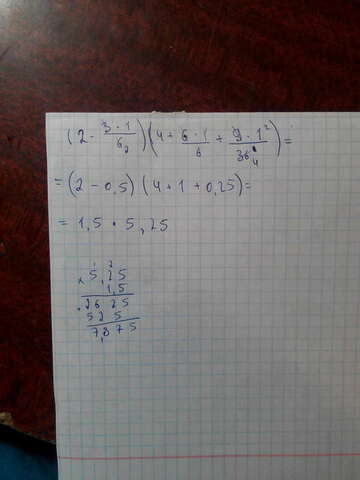 (2 - 3·1/6₂)(4 + 6·1/6 + 9·1²/36₄) =
= (2 - 0,5) (4 + 1 + 0,25) =
= 1,5 · 5,25
× 5,25
1,5
2625
525
7,875